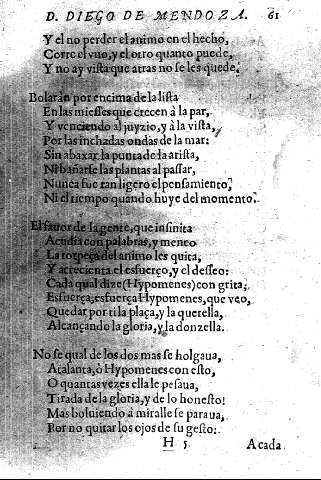 D. DIEGO DE MENDOZA. 61
Y el no perder el animo en el hecho,
Corre el vno, y el otro quanto puede,
Y no ay vista que atras no se les quede.
Bolarán por encima de la lista
En las miesses que crecen à la par,
Y venciendo al juyzio, y à la vista,
Por las inchadas ondas de la mar:
Sin abaxar la punta de la arista,
Ni bañarse las plantas al passar,
Nunca fue tan ligero el pensamiento,
Ni el tiempo quando huye del momento.
El fauor de la gente, que infinita
Acudia con palabras, y meneo
La torpeça del animo les quita,
Y acrecienta el esfuerço, y el desseo:
Cada qual dize (Hypomenes) con grita,
Esfuerça, esfuerça Hypomenes, que veo,
Quedar por ti la plaça, y la querella,
Alcançando la gloria, y la donzella.
No se qual de los dos mas se holgaua,
Atalanta, ò Hypomenes con esto,
O quantas vezes ella le pesaua,
Tirada de la gloria, y de lo honesto!
Mas boluiendo à miralle se paraua,
Por no quitar los ojos de su gesto:
H 5 Acada